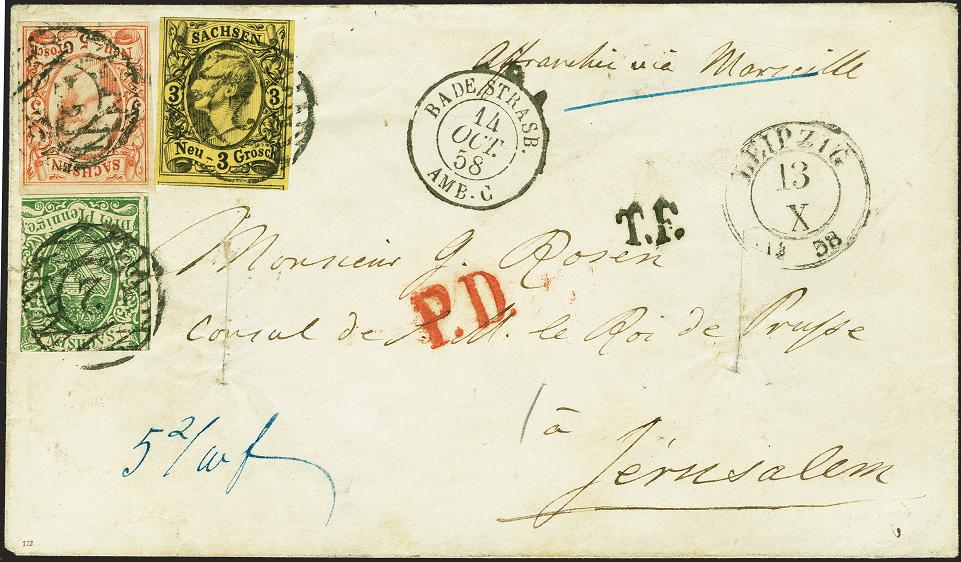 Neu-5 Grosch.
SACHSEN
SACHSEN
3 3
Neu-3 Grosch.
Affranchie via Marseille
BADE STRASB.
14
OCT.
58
AMB. C
LEIPZIG
13
X
58
Drei Pfennige.
SACHSEN
T.F.
Monsieur G. Rosen
P.D.
Consul de S. M. le Roi de Prusse
à
Jérusalem
172